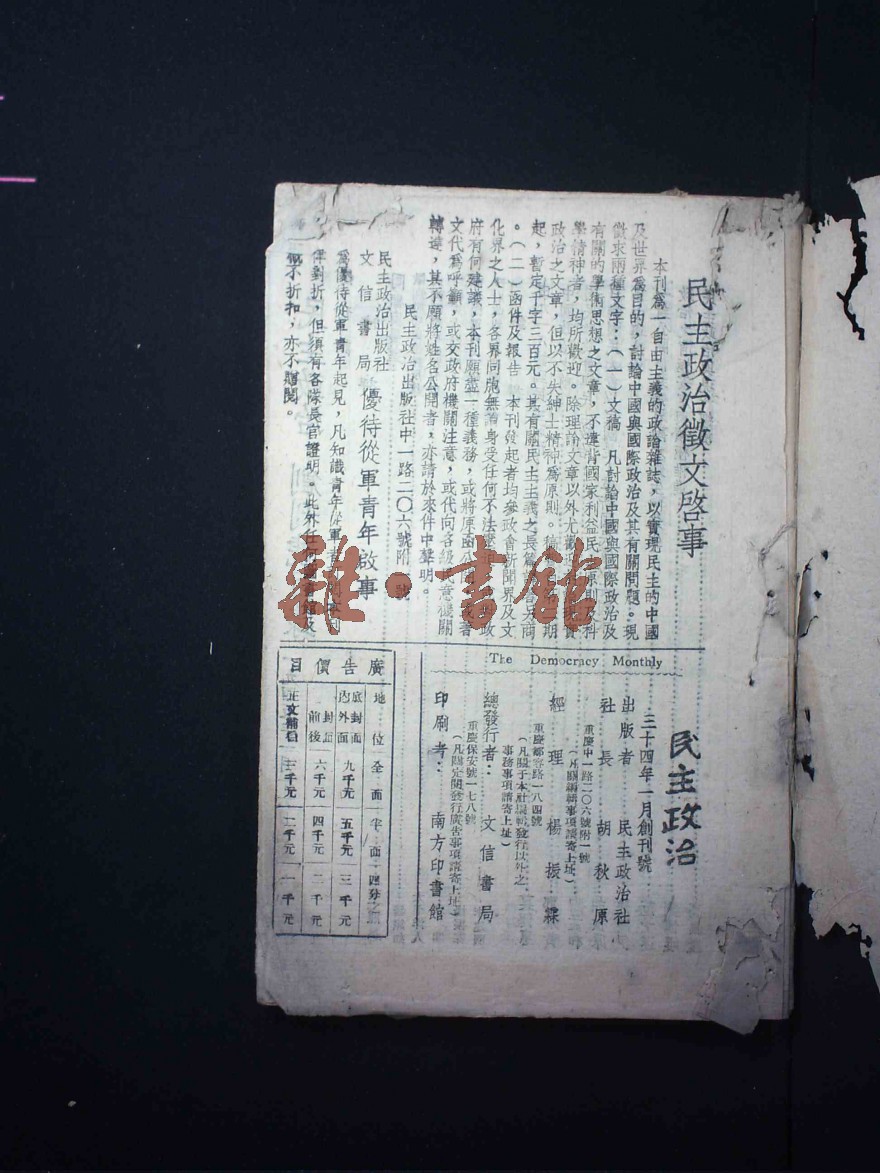 民主政治徵文啓事
本刊爲一自由主義的政論雜誌，以實現民主的中國
及世界爲目的，討論中國與國際政治及其有關問題。現
徵求兩種文字：（一）文稿　凡討論中國與國際政治及
有關的學術思想之文章，不違背國家利益民
原則及科
學精神者，均所歡迎。除理論文章以外尤歡迎
現實
政治之文章，但以不失紳士精神爲原則。
期
起，暫定千字三百元。其有關民主主義之長篇
另商
。（二）函件及報告　本刊發起者均參政會新聞界及文
化界之人士，各界同胞無論身受任何不法
政
府有何建議，本刊願盡一種義務，或將原函公
著
文代爲呼籲，或交政府機關注意，或代向各級
意機關
轉達，其不願將姓名公開者，亦請於來件中聲明。
民主政治出版社中一路二〇六號附
號
民主政治出版社
文信書局
優待從軍青年啟事
爲優待從軍青年起見，凡知識青年從軍
對折，但須有各隊長官證明。此外任
及
不折扣，亦不贈閱。
雜·書館
The Democracy Monthly
民主政治
三十四年一月創刊號
出版者　民主政治社
社長　胡秋原
重慶中一路二〇六號附一號
（凡關編輯事項請寄上址）
經理　楊振霖
重慶鄒容路一八四號
（凡關于本社
發行以外之
事務事項請寄上址）
總發行者：文信書局
重慶保安號一七八號
（凡關定閱發行廣告事項請寄上址）
印刷者：南方印書館
廣告價目
地位　全面　半面　四分之一
底封面
內外面　九千元　五千元　三千元
封面
前後　六千元　四千元　二千元
正文補白　三千元　二千元　一千元